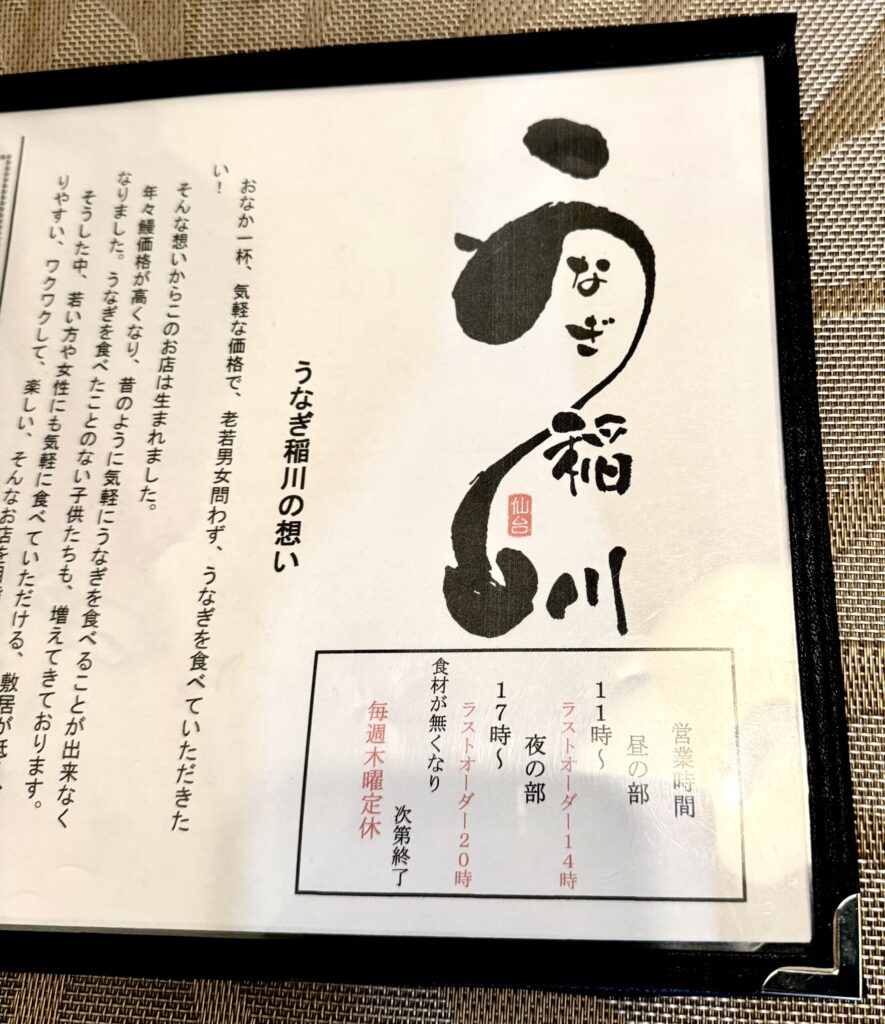 うなぎ
稲川
仙台
営業時間
昼の部
11時～
ラストオーダー14時
夜の部
17時～
ラストオーダー20時
食材が無くなり
次第終了
毎週木曜定休
うなぎ稲川の想い
おなか一杯、気軽な価格で、老若男女問わず、うなぎを食べていただきた
い！
そんな想いからこのお店は生まれました。
年々鰻価格が高くなり、昔のように気軽にうなぎを食べることが出来なく
なりました。うなぎを食べたことのない子供たちも、増えてきております。
そうした中、若い方や女性にも気軽に食べていただける、敷居が低く、
りやすい、ワクワクして、楽しい、そんなお店を目